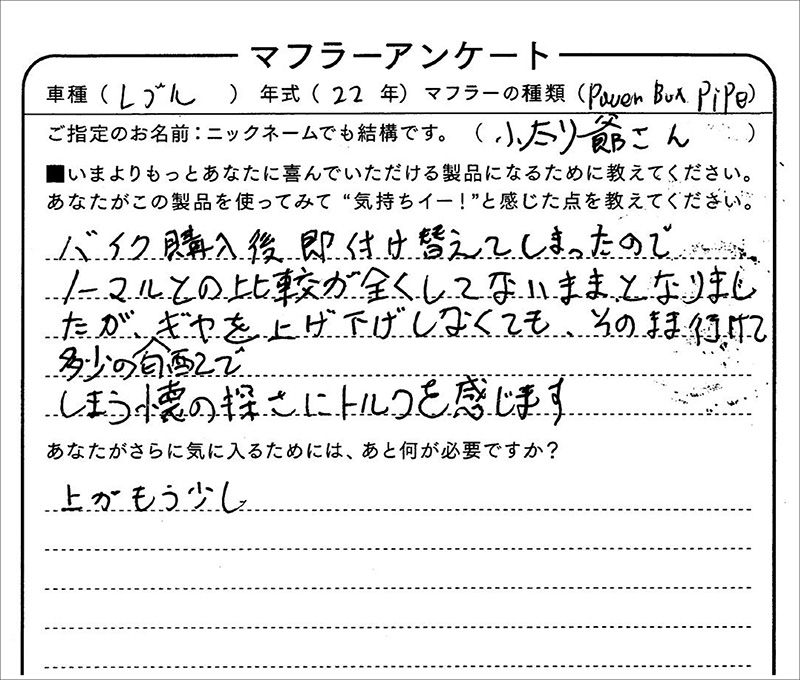 マフラーアンケート
車種(レブル ) 年式(22 年) マフラーの種類(Power Box PIPE)
ご指定のお名前:ニックネームでも結構です。(ふたり爺さん )
■いまよりもっとあなたに喜んでいただける製品になるために教えてください。
あなたがこの製品を使ってみて“気持ちイー!”と感じた点を教えてください。
バイク購入後即付け替えてしまったので
ノーマルとの比較が全くしてないままとなりまし
たが、ギヤを上げ下げしなくても、そのまま行けて
多少の勾配で
しまう懐の深さにトルクを感じます
あなたがさらに気に入るためには、あと何が必要ですか?
上がもう少し